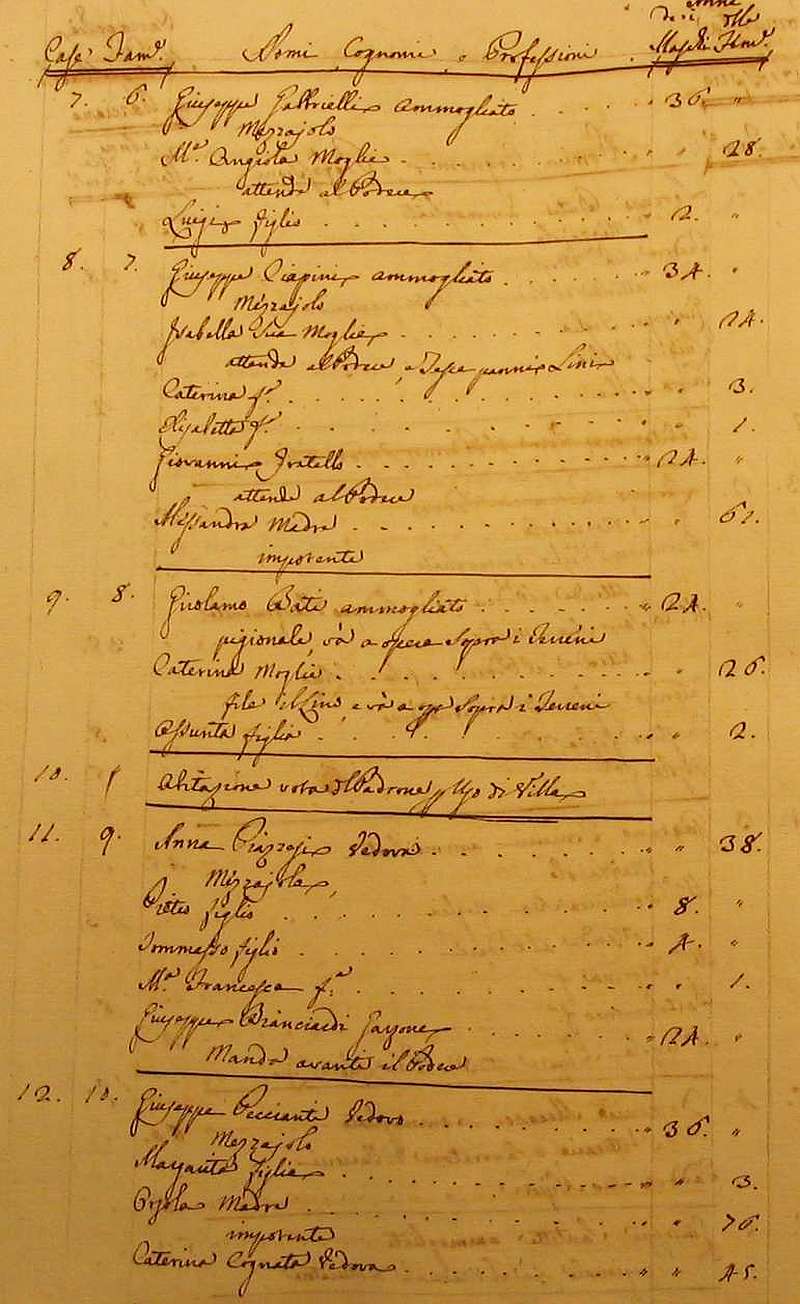 Case Fam.e Nomi Cognomi e Professioni Maschi Fem.e
7. 6. Giuseppe Gabbrielli ammogliato 36. "
Mezzajolo
M.a Angiola Moglie " 28.
attende al Podere
Luigi figlio 2. "
8. 7. Giuseppe Ciapini ammogliato 34. "
Mezzajolo
Isabella Sua Moglie " 24.
attende al Podere, e Tesse panni Lini
Caterina f.a " 3.
Elisabetta f.a " 1.
Giovanni Fratello 24. "
attende al Podere
Alessandra Madre " 61.
impotente
9. 8. Girolamo Bati ammogliato 24. "
pigionale, và a opera Sopra i Terreni
Caterina Moglie " 26.
fila il Lino, e và a opa Sopra i Terreni
Assunta figlia " 2.
10. Abitazione vota del Padrone p uso di Villa
11. 9. Anna Piazzesi Vedova " 38.
Mezzajola
Pietro figlio 8. "
Tommasso figlio 4. "
M.a Francesca f.a " 1.
Giuseppe Branciardi Garzone 24. "
Manda avanti il Podere
12. 10. Giuseppe Pecciante Vedovo 36. "
Mezzajolo
Margarita figlia " 3.
Orsola Madre " 76.
impotente
Caterina Cognata Vedova " 45.